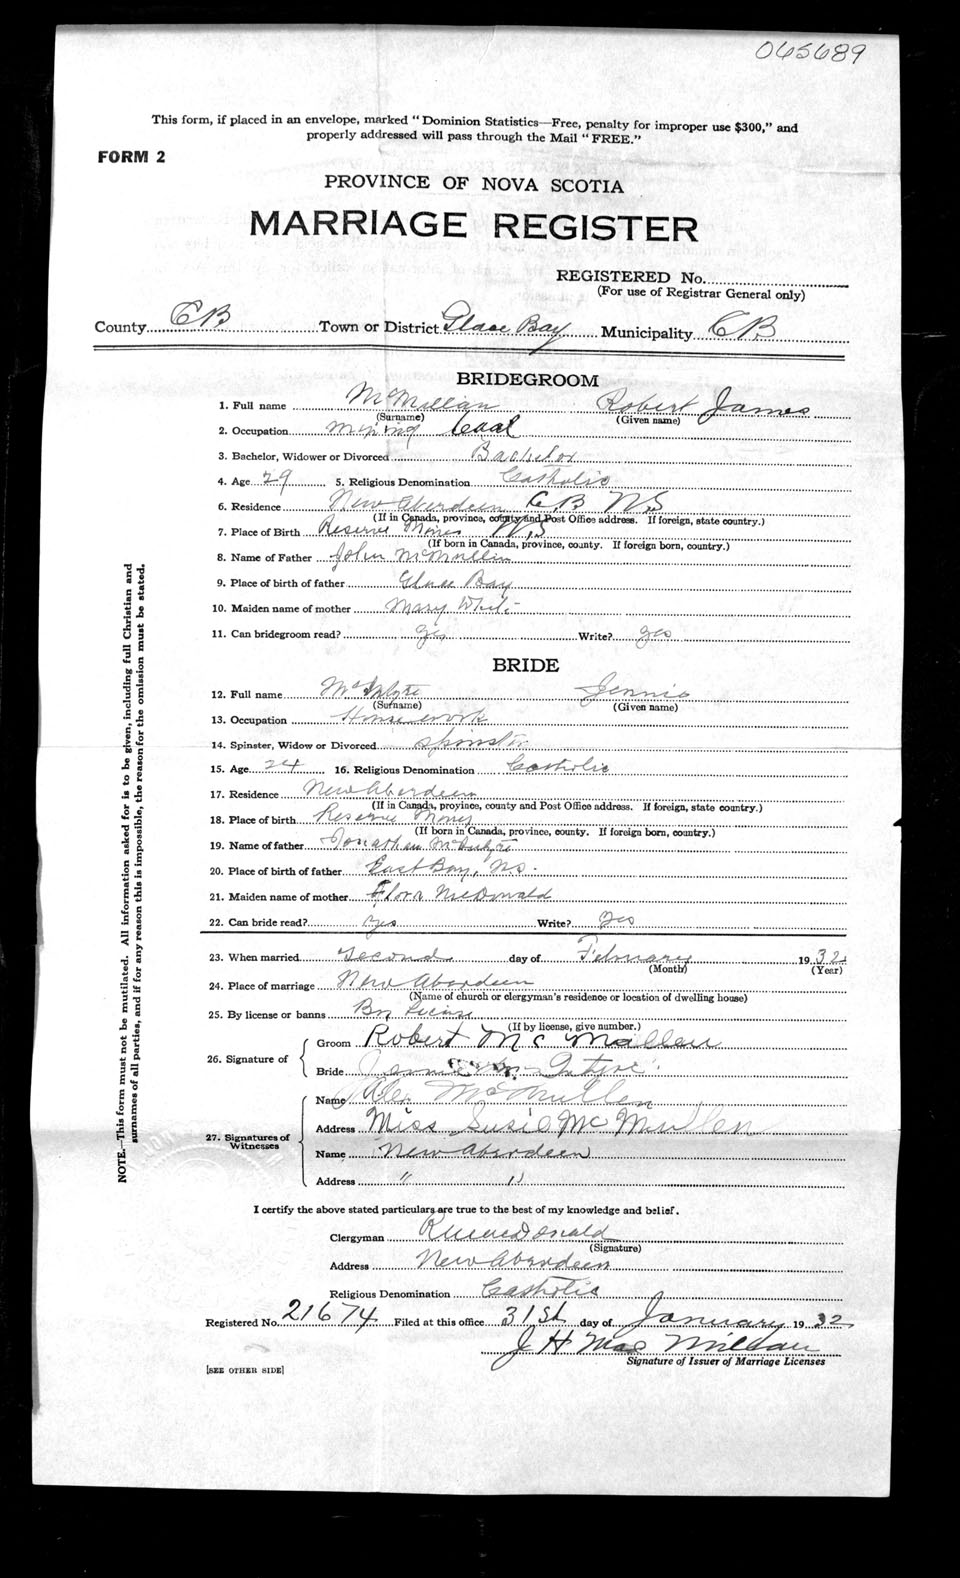 065689
This form, if placed in an envelope, marked "Dominion Statistics—Free, penalty for improper use $300," and
properly addressed will pass through the Mail "FREE."
FORM 2
PROVINCE OF NOVA SCOTIA
MARRIAGE REGISTER
REGISTERED No.
(For use of Registrar General only)
County CB Town or District Glace Bay Municipality CB
BRIDEGROOM
1. Full name McMillan Robert James
(Surname) (Given name)
2. Occupation Mining Coal
3. Bachelor, Widower or Divorced Bachelor
4. Age 29 5. Religious Denomination Catholic
6. Residence New Aberdeen CB NS
(If in Canada, province, county and Post Office address. If foreign, state country.)
7. Place of Birth Reserve Mines NS
(If born in Canada, province, county. If foreign born, country.)
8. Name of Father John McMullin
9. Place of birth of father Glace Bay
10. Maiden name of mother Mary White
11. Can bridegroom read? yes Write? yes
BRIDE
12. Full name McIntyre Jennie
(Surname) (Given name)
13. Occupation Housework
14. Spinster, Widow or Divorced Spinster
15. Age 24 16. Religious Denomination Catholic
17. Residence New Aberdeen
(If in Canada, province, county and Post Office address. If foreign, state country.)
18. Place of birth Reserve Mines
(If born in Canada, province, county. If foreign born, country.)
19. Name of father Jonathan McIntyre
20. Place of birth of father East Bay, NS.
21. Maiden name of mother Flora McDonald
22. Can bride read? yes Write? yes
23. When married Second day of February 1932
(Month) (Year)
24. Place of marriage New Aberdeen
(Name of church or clergyman's residence or location of dwelling house)
25. By license or banns By License
(If by license, give number.)
26. Signature of
Groom Robert McMullen
Bride Jennie Mc Intyre
27. Signatures of Witnesses
Name Alex McMullen
Address Miss Susie McMullen
Name New Aberdeen
Address " "
I certify the above stated particulars are true to the best of my knowledge and belief.
Clergyman MacDonald
(Signature)
Address New Aberdeen
Religious Denomination Catholic
Registered No. 21674 Filed at this office 31st day of January 1932
J H MacMillan
Signature of Issuer of Marriage Licenses
[SEE OTHER SIDE]
NOTE.—This form must not be mutilated. All information asked for is to be given, including full Christian and
surnames of all parties, and if for any reason this is impossible, the reason for the omission must be stated.